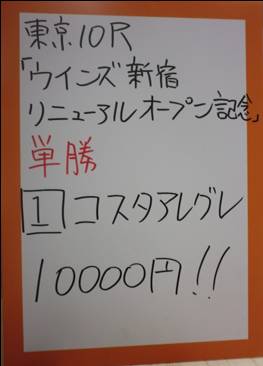 東京10R
「ウインズ新宿
リニューアルオープン記念」
単勝
1 コスタアレグレ
10000円!!